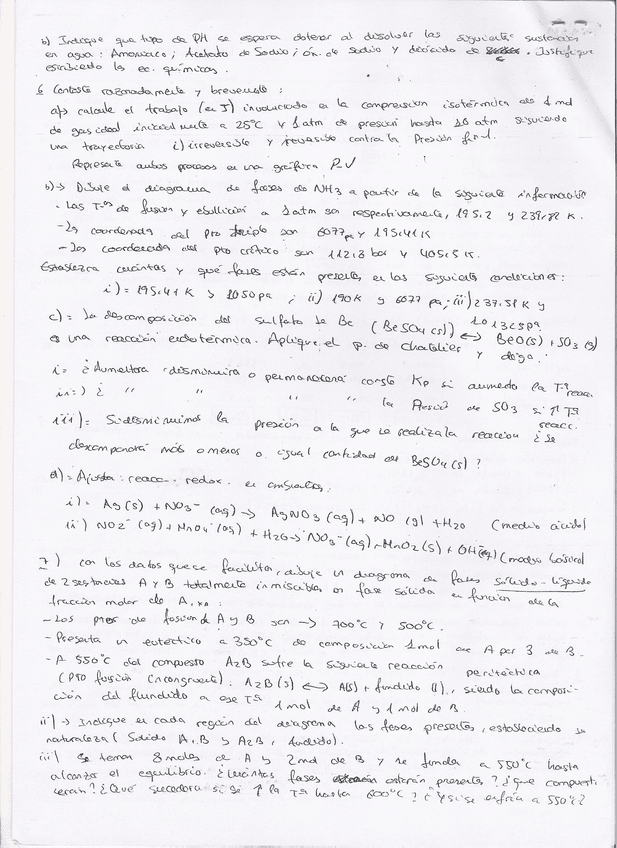 b) Indique que tipo de PH se espera obtener al disolver las siguientes sustancias
en agua: Amoniaco; Acetato de Sodio; óx. de sodio y decóxido de . Justifique
escribiendo las ec. químicas.
6 Conteste razonadamente y brevemente:
a) calcule el trabajo (en J) involucrado en la compresión isotérmica de 1 mol
de gas ideal inicialmente a 25°C y 1 atm de presión hasta 10 atm siguiendo
una trayectoria i) irreversible y reversible contra la Presión final.
Represente ambos procesos en una gráfica P.V
b) → Dibuje el diagrama de fases de NH3 a partir de la siguiente información
- Las Tªs de fusión y ebullición a 1 atm son respectivamente, 195,2 y 239,82 K.
- las coordenadas del pto triple son 6077 pa y 195,41 K
- las coordenadas del pto crítico son 112,3 bar y 405,5 K.
Establezca cuántas y qué fases están presentes en las siguientes condiciones:
i) = 195,41 K y 1050 pa ; ii) 190 K y 6077 pa; iii) 237,51 K y
101325 Pa
c) = la descomposición del sulfato de Be (BeSO4 (s)) ⟷ BeO(s) + SO3 (g)
es una reacción endotérmica. Aplique el p. de chatelier y diga:
i = ¿Aumentara disminuira o permanecerá conste Kp si aumento la Tª reacc.
ii =) ¿ " " " " la Presió de SO3 si ↑ Tª
reacc.
iii) = Si disminuimos la presión a la que se realiza la reacción ¿Se
descompondrá más o menos o igual cantidad de BeSO4 (s)?
d) = Ajusta: reacc. redox. en
i) = Ag (s) + NO3⁻ (aq) → AgNO3 (aq) + NO (g) + H2O (medio ácido)
ii) NO2⁻ (aq) + MnO4⁻ (aq) + H2O → NO3⁻ (aq) + MnO2 (s) + OH⁻(aq) (medio básico)
7) con los datos que se facilitan, dibuje un diagrama de fases sólido-líquido
de 2 sustancias A y B totalmente inmiscibles en fase sólida en función de la
fracción molar de A, xA:
- Los ptos de fusion de A y B son → 700°C y 500°C.
- Presenta un eutéctico a 350°C de composición 1 mol de A por 3 de B.
- A 550°C del compuesto A2B sufre la siguiente reacción peritéctica
(pto fusión incongruente): A2B (s) ⟷ A(s) + fundido (l), siendo la composi-
ción del fundido a ese Tª 1 mol de A y 1 mol de B.
ii) → Indique en cada región del diagrama las fases presentes, estableciendo su
naturaleza (Sólido A, B y A2B, fundido).
iii) Se toman 8 moles de A y 2 mol de B y se funde a 550°C hasta
alcanzar el equilibrio. ¿Cuántas fases estarán presentes? ¿que compuesti
serán? ¿Qué sucedera si se ↑ la Tª hasta 600°C? ¿Y si se enfría a 550°C?